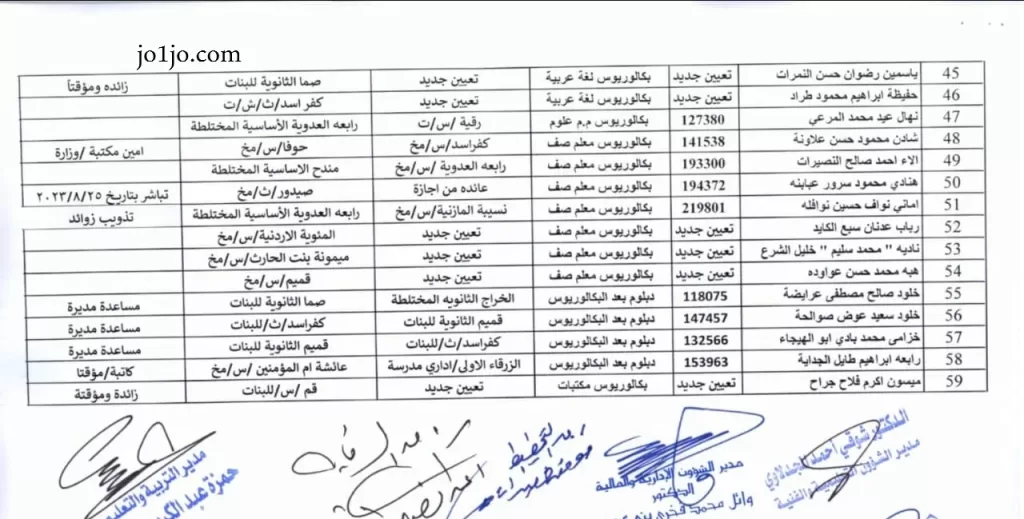 jo1jo.com
45 ياسمين رضوان حسن النمرات تعيين جديد بكالوريوس لغة عربية تعيين جديد صما الثانوية للبنات زائده ومؤقتاً
46 حفيظة ابراهيم محمود طراد تعيين جديد بكالوريوس لغة عربية تعيين جديد كفر اسد/ث/ش/ت
47 نهال عيد محمد المرعي 127380 بكالوريوس م.م علوم رقية /س/ت رابعه العدوية الأساسية المختلطة
48 شادن محمود حسن علاونة 141538 بكالوريوس معلم صف كفراسد/س/مخ حوفا/س/مخ امين مكتبة /وزارة
49 الاء احمد صالح النصيرات 193300 بكالوريوس معلم صف رابعه العدوية /س/مخ مندح الاساسية المختلطة
50 هنادي محمود سرور عبابنه 194372 بكالوريوس معلم صف عائده من اجازة صيدور/ث/مخ تباشر بتاريخ ٢٠٢٣/٨/٢٥
51 اماني نواف حسين نوافله 219801 بكالوريوس معلم صف نسيبة المازنية/س/مخ رابعه العدوية الأساسية المختلطة تذويب زوائد
52 رباب عدنان سبع الكايد تعيين جديد بكالوريوس معلم صف تعيين جديد المئوية الاردنية/س/مخ
53 ناديه " محمد سليم " خليل الشرع تعيين جديد بكالوريوس معلم صف تعيين جديد ميمونة بنت الحارث/س/مخ
54 هبه محمد حسن عواوده تعيين جديد بكالوريوس معلم صف تعيين جديد قميم/س/مخ
55 خلود صالح مصطفى عرايضة 118075 دبلوم بعد البكالوريوس الخراج الثانويه المختلطة صما الثانوية للبنات مساعدة مديرة
56 خلود سعيد عوض صوالحة 147457 دبلوم بعد البكالوريوس قميم الثانوية للبنات كفراسد/ث/للبنات مساعدة مديرة
57 خزامى محمد بادي ابو الهيجاء 132566 دبلوم بعد البكالوريوس كفراسد/ث/للبنات قميم الثانوية للبنات مساعدة مديرة
58 رابعه ابراهيم طايل الجداية 153963 دبلوم بعد البكالوريوس الزرقاء الاولى/اداري مدرسة عائشة ام المؤمنين /س/مخ كاتبة/مؤقتا
59 ميسون اكرم فلاح جراح تعيين جديد بكالوريوس مكتبات تعيين جديد قم /س/للبنات زائدة ومؤقتة
الدكتور شوقي احمد
مدير الشؤون التعليمية والفنية
مدير الشؤون الإدارية والمالية
الدكتور
وائل محمد فخري
مدير التربية والتعليم
حمزة عبد